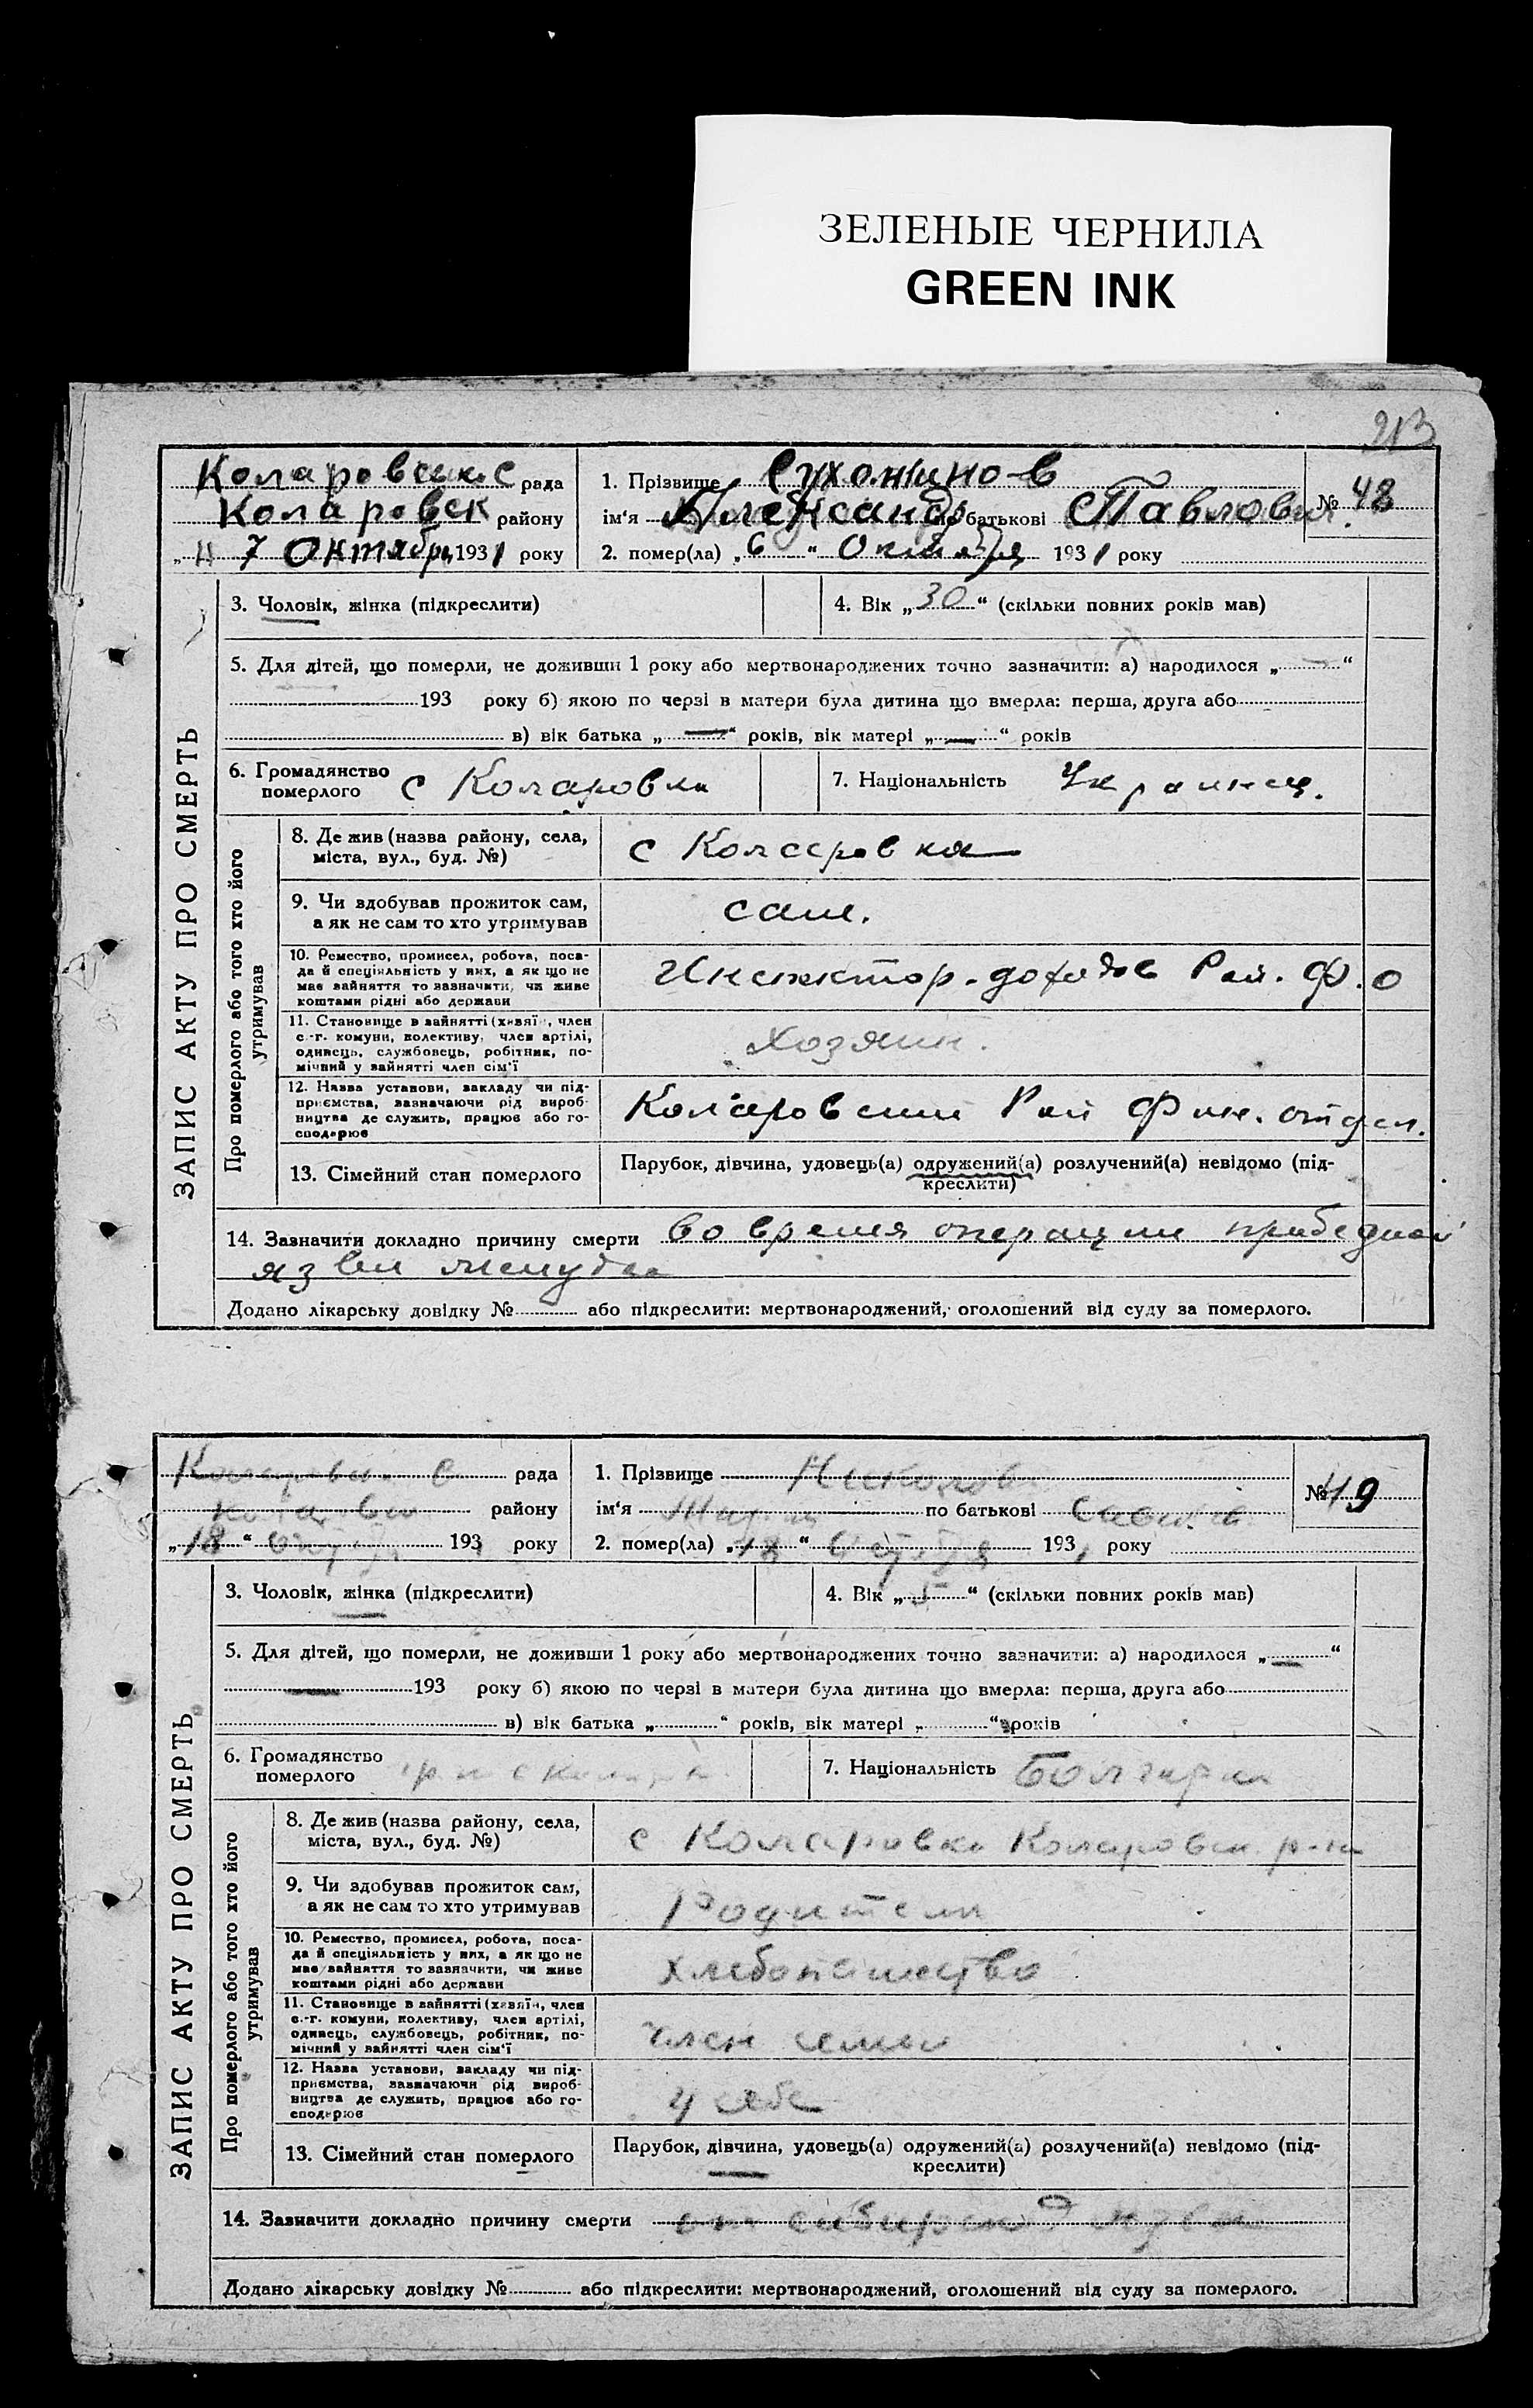 ЗЕЛЕНЫЕ ЧЕРНИЛА
GREEN INK
213
Коларовск. с рада
Коларовск району
„ 7 Октября 1931 року
1. Прізвище Сухожинов
ім‘я Александр по батькові Павлович
№ 48
2. помер(ла) „6“ Октября 1931 року
ЗАПИС АКТУ ПРО СМЕРТЬ
3. Чоловік, жінка (підкреслити)
4. Вік „30“ (скільки повних років мав)
5. Для дітей, що померли, не доживши 1 року або мертвонароджених точно зазначити: а) народилося „—“
193 року б) якою по черзі в матери була дитина що вмерла: перша, друга або
в) вік батька „—“ років, вік матері „—“ років
6. Громадянство
померлого с Коларовка
7. Національність Украинец.
Про померлого або того хто його
утримував
8. Де жив (назва району, села,
міста, вул., буд. №)
с Коларовка
9. Чи здобував прожиток сам,
а як не сам то хто утримував
сам.
10. Ремество, промисел, робота, поса-
да й спеціяльність у них, а як що не
має зайняття то зазначити, чи живе
коштами рідні або держави
Инспектор. доходов Рай. Ф. О
11. Становище в зайнятті (хазяїн, член
с.-г. комуни, колективу, член артілі,
одинець, службовець, робітник, по-
мічний у зайнятті член сім‘ї
Хозяин.
12. Назва установи, закладу чи під-
приємства, зазначаючи рід вироб-
ництва де служить, працює або го-
сподарює
Коларовский Рай Фин. отдел.
13. Сімейний стан померлого
Парубок, дівчина, удовець(а) одружений(а) розлучений(а) невідомо (під-
креслити)
14. Зазначити докладно причину смерти во время операции
язвы желудка
Додано лікарську довідку № або підкреслити: мертвонароджений, оголошений від суду за померлого.
с рада
району
„18“ 1931 року
1. Прізвище Николов
ім‘я по батькові
№ 49
2. помер(ла) „18“ 1931 року
ЗАПИС АКТУ ПРО СМЕРТЬ
3. Чоловік, жінка (підкреслити)
4. Вік „5“ (скільки повних років мав)
5. Для дітей, що померли, не доживши 1 року або мертвонароджених точно зазначити: а) народилося „—“
— 193 року б) якою по черзі в матери була дитина що вмерла: перша, друга або
в) вік батька „“ років, вік матері „“ років
6. Громадянство
померлого
7. Національність Болгарка
Про померлого або того хто його
утримував
8. Де жив (назва району, села,
міста, вул., буд. №)
с Коларовка Коларовск. р-на
9. Чи здобував прожиток сам,
а як не сам то хто утримував
Родители
10. Ремество, промисел, робота, поса-
да й спеціяльність у них, а як що не
має зайняття то зазначити, чи живе
коштами рідні або держави
хлебопашество
11. Становище в зайнятті (хазяїн, член
с.-г. комуни, колективу, член артілі,
одинець, службовець, робітник, по-
мічний у зайнятті член сім‘ї
член семьи
12. Назва установи, закладу чи під-
приємства, зазначаючи рід вироб-
ництва де служить, працює або го-
сподарює
у себе
13. Сімейний стан померлого
Парубок, дівчина, удовець(а) одружений(а) розлучений(а) невідомо (під-
креслити)
14. Зазначити докладно причину смерти от сибирской язвы
Додано лікарську довідку № або підкреслити: мертвонароджений, оголошений від суду за померлого.